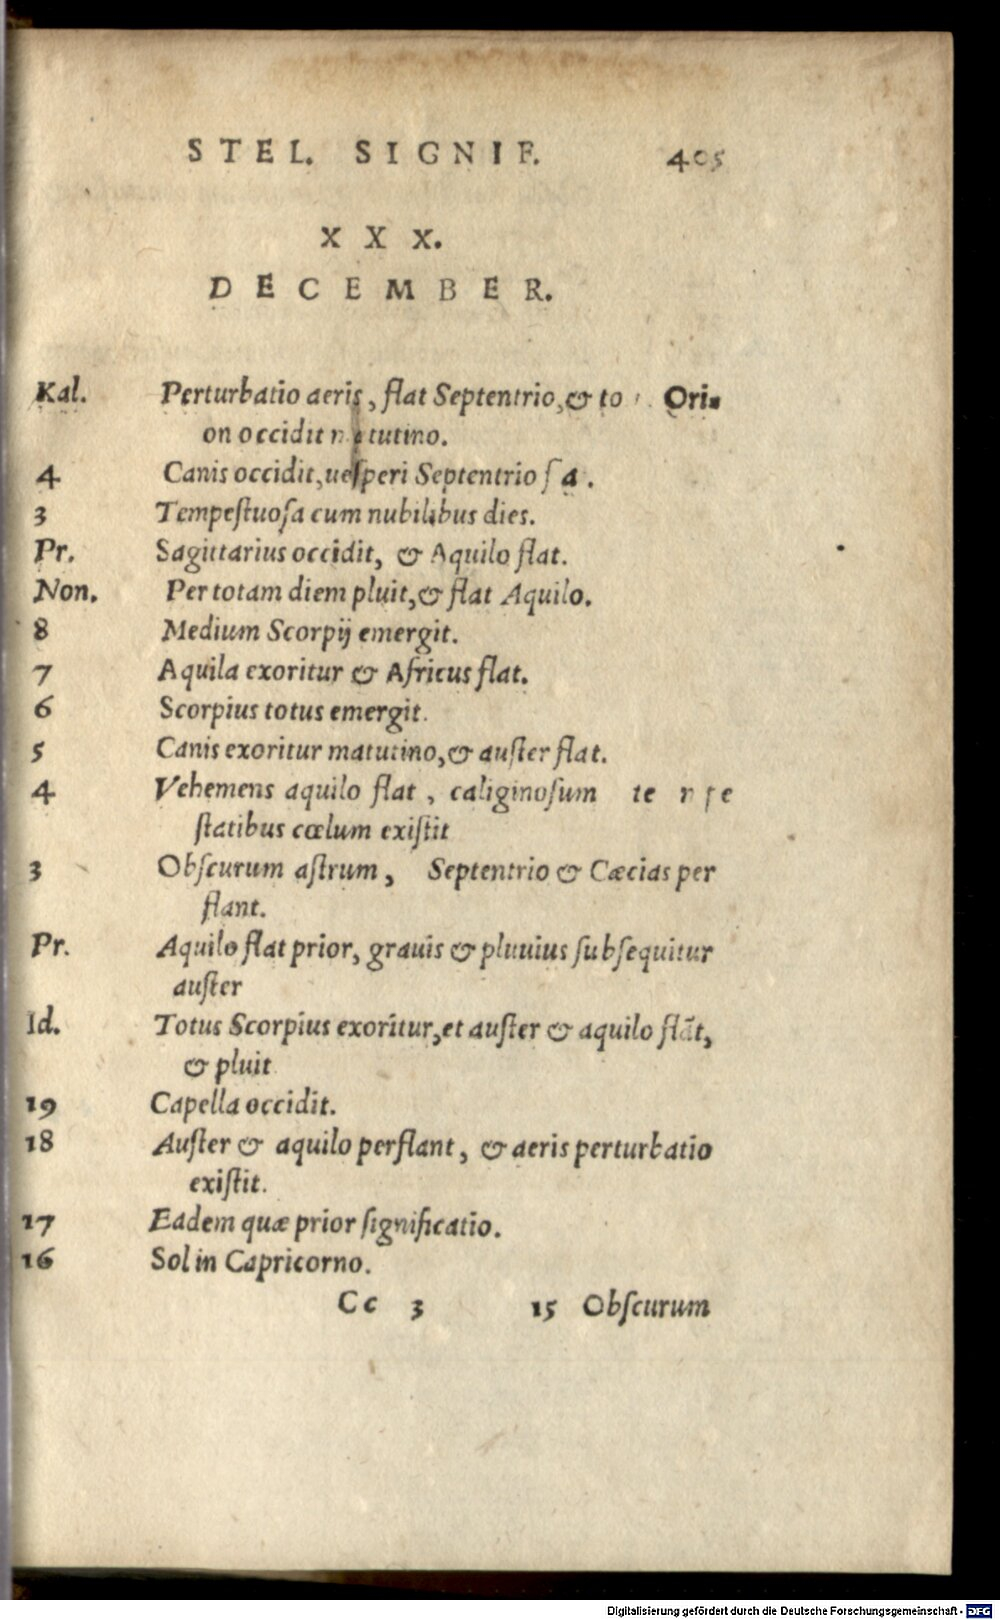 STEL. SIGNIF. 405
XXX.
DECEMBER.
Kal. Perturbatio aeris, flat Septentrio, & to Ori-
on occidit matutino.
4 Canis occidit, ueſperi Septentrio
3 Tempeſtuoſa cum nubilibus dies.
Pr. Sagittarius occidit, & Aquilo flat.
Non. Per totam diem pluit, & flat Aquilo.
8 Medium Scorpij emergit.
7 Aquila exoritur & Africus flat.
6 Scorpius totus emergit.
5 Canis exoritur matutino, & auſter flat.
4 Vehemens aquilo flat, caliginoſum te pe
ſtatibus cœlum exiſtit
3 Obſcurum aſtrum, Septentrio & Cæcias per
flant.
Pr. Aquilo flat prior, grauis & pluuius ſubſequitur
auſter
Id. Totus Scorpius exoritur, et auſter & aquilo flāt,
& pluit
19 Capella occidit.
18 Auſter & aquilo perflant, & aeris perturbatio
exiſtit.
17 Eadem quæ prior ſignificatio.
16 Sol in Capricorno.
Cc 3 15 Obſcurum
Digitalisierung gefördert durch die Deutsche Forschungsgemeinschaft - DFG